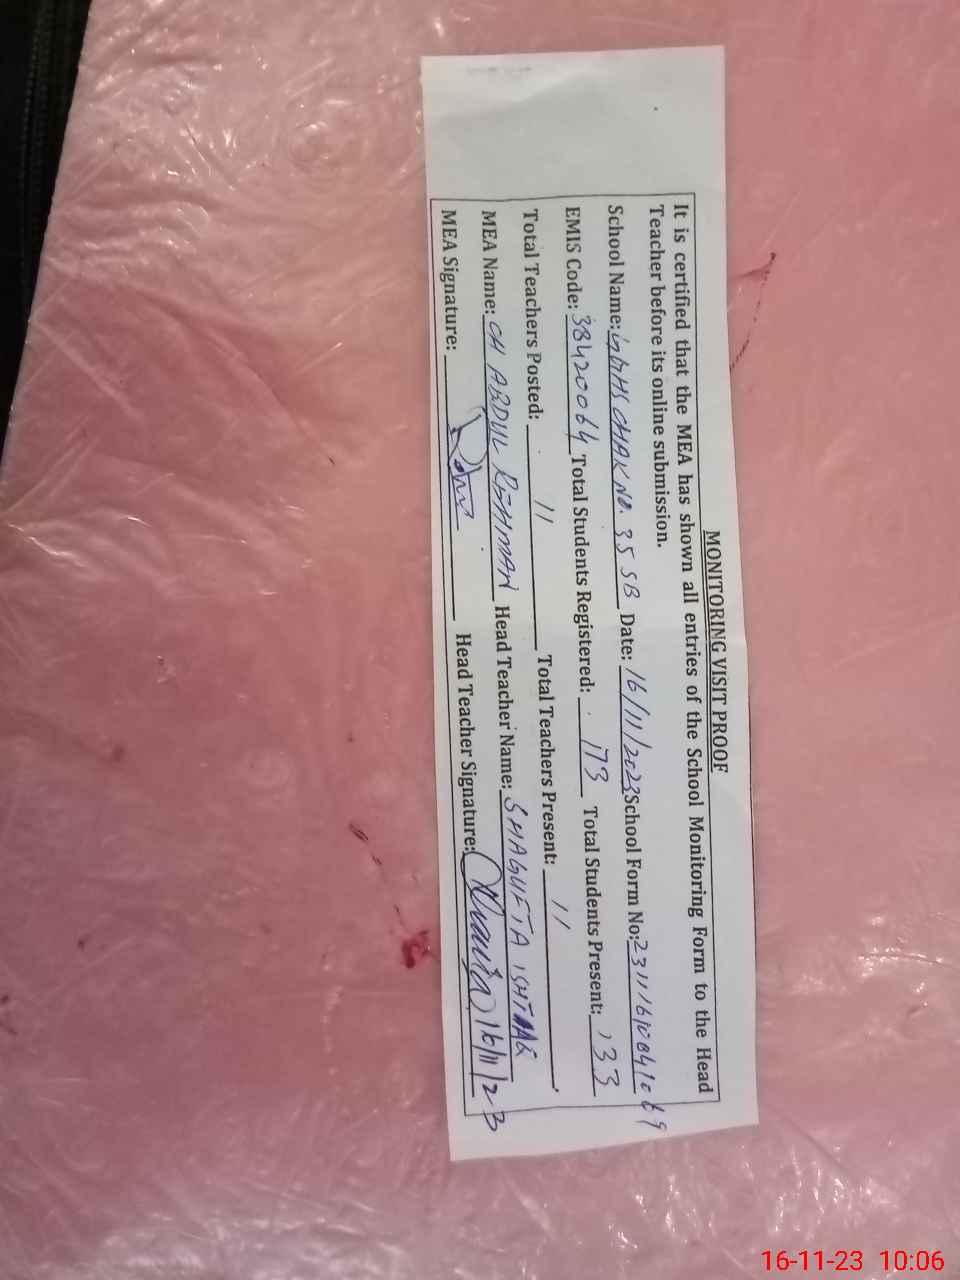 MONITORING VISIT PROOF
It is certified that the MEA has shown all entries of the School Monitoring Form to the Head
Teacher before its online submission.
School Name: GGHS CHAK NO. 35 SB Date: 16/11/2023 School Form No:
EMIS Code: 38420064 Total Students Registered: 173 Total Students Present: 133
Total Teachers Posted: 11 Total Teachers Present: 11
MEA Name: CH ABDUL REHMAN Head Teacher Name: SHAGUFTA ISHTIAQ
MEA Signature: Head Teacher Signature: 16/11/23
16-11-23 10:06